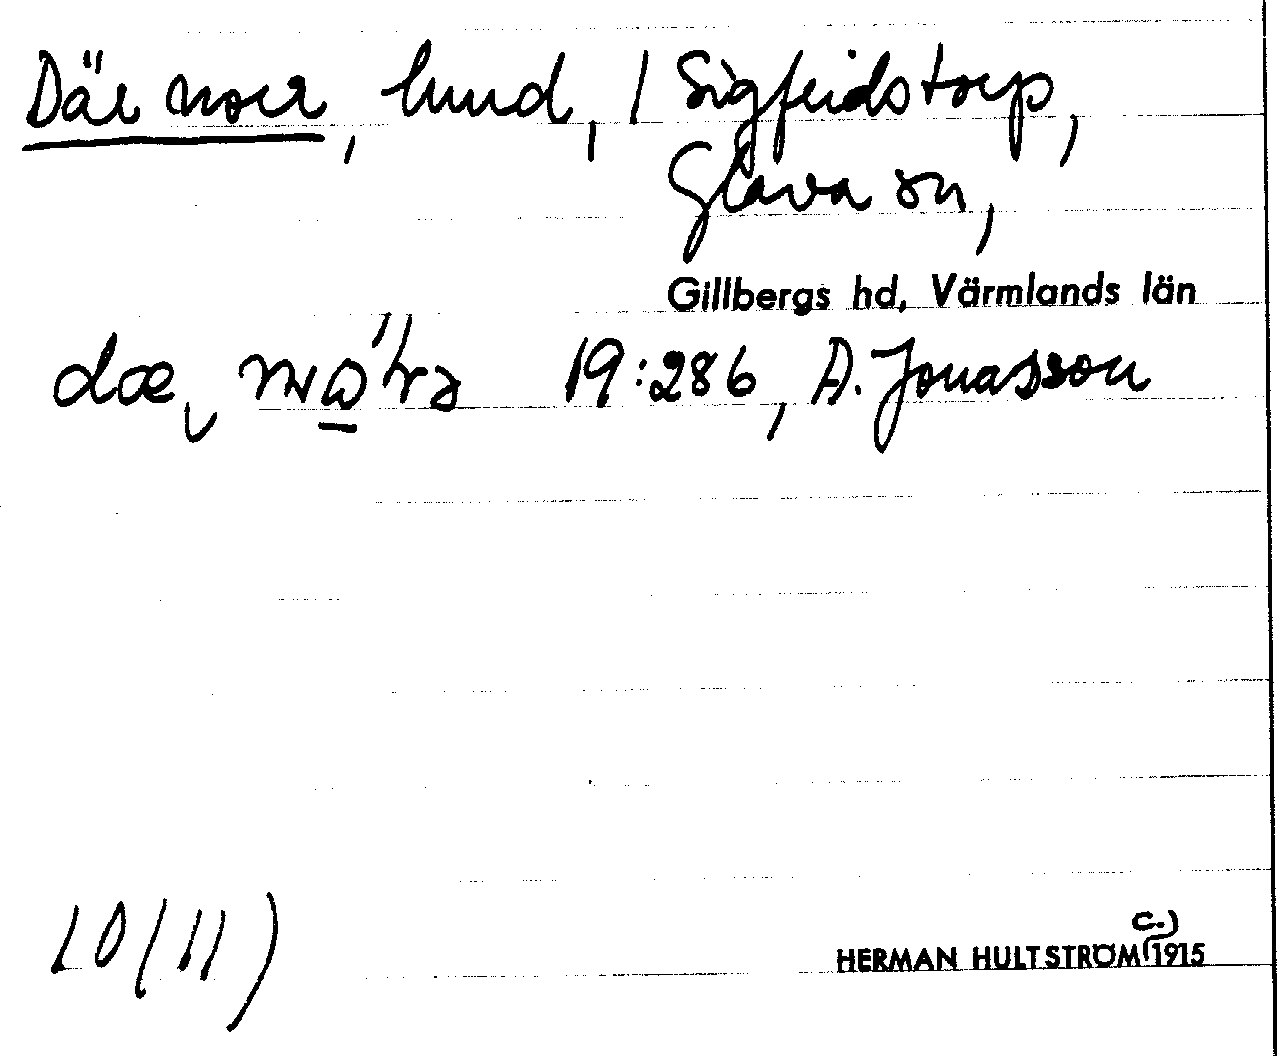 Där norr, lund, / Sigfridstorp,
Glava sn,
Gillbergs hd, Värmlands län
19:286, A. Jonasson
10(11)
C.)
HERMAN HULTSTRÖM (1915